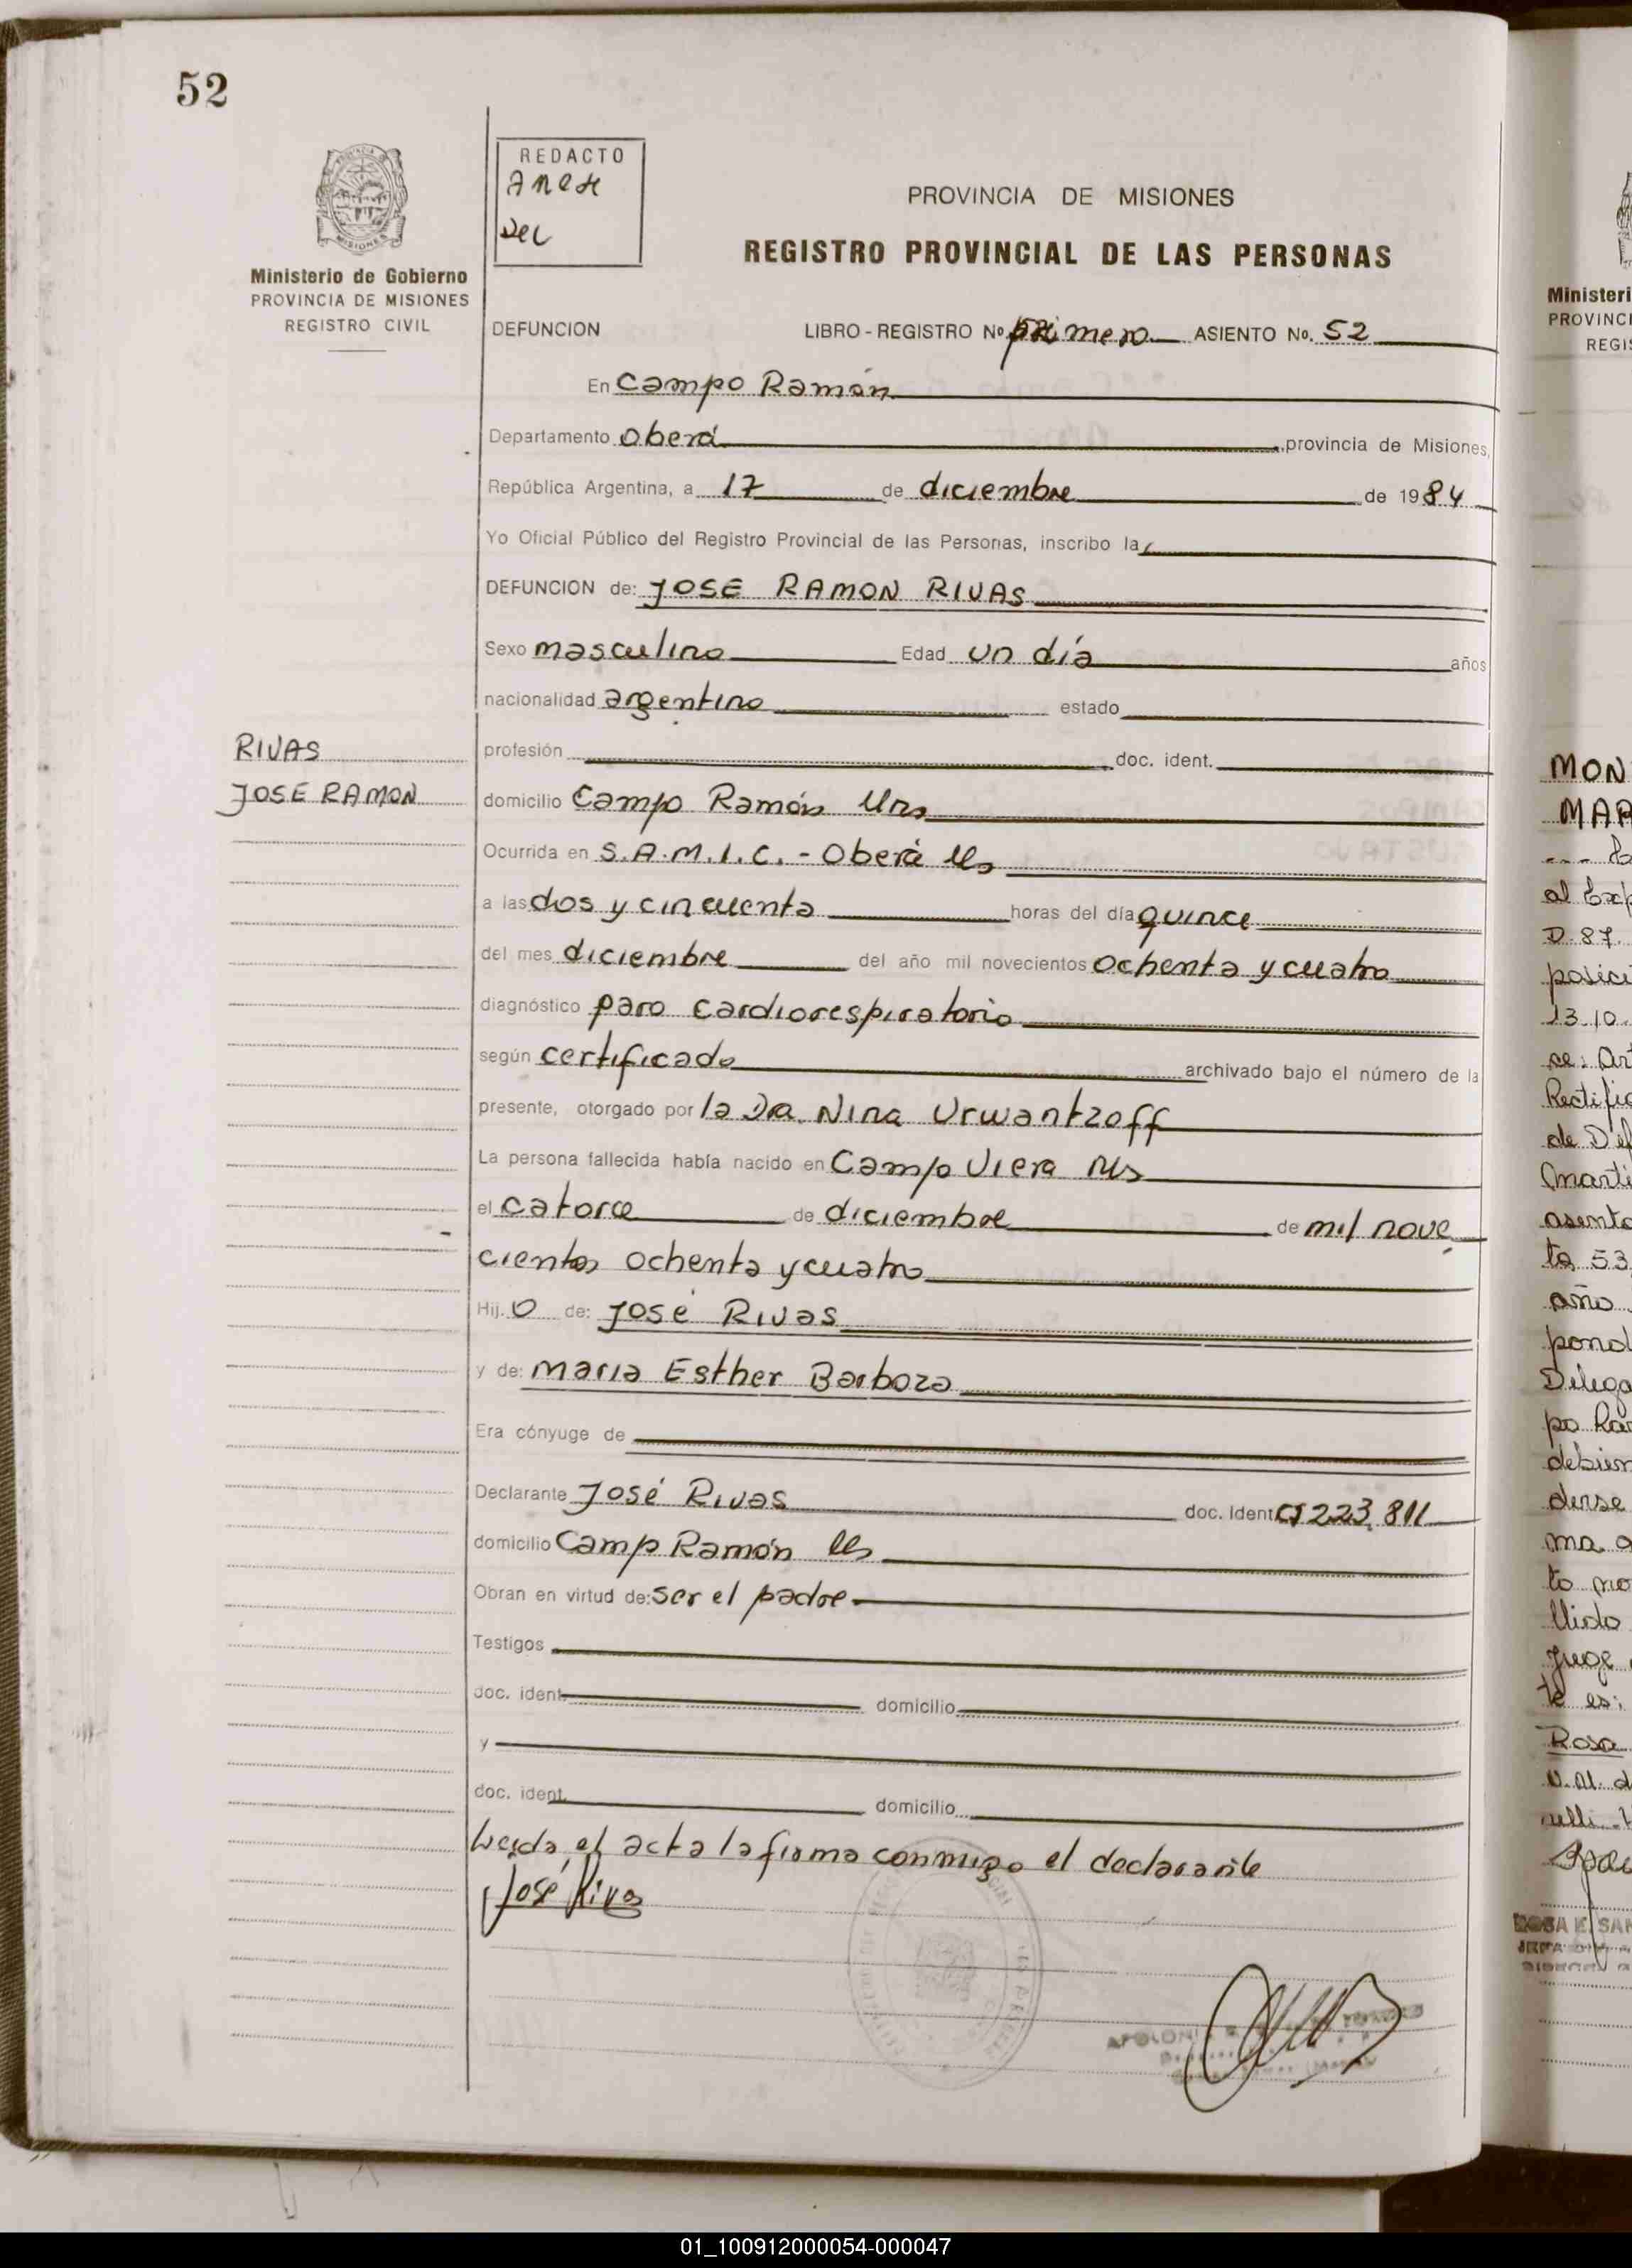 52
REDACTO
PROVINCIA DE MISIONES
REGISTRO PROVINCIAL DE LAS PERSONAS
MISIONES
Ministerio de Gobierno
PROVINCIA DE MISIONES
REGISTRO CIVIL
DEFUNCION LIBRO - REGISTRO No. primero ASIENTO No. 52
En Campo Ramón
Departamento Oberá provincia de Misiones,
República Argentina, a 17 de diciembre de 1984
Yo Oficial Público del Registro Provincial de las Personas, inscribo la
DEFUNCION de: JOSE RAMON RIVAS
Sexo masculino Edad un día años
nacionalidad argentino estado
RIVAS
JOSE RAMON
profesión doc. ident.
domicilio Campo Ramón Mns
Ocurrida en S.A.M.I.C. - Oberá Ms
a las dos y cincuenta horas del día quince
del mes diciembre del año mil novecientos ochenta y cuatro
diagnóstico paro cardiorespiratorio
según certificado archivado bajo el número de la
presente, otorgado por la Dra. Nina Urwantzoff
La persona fallecida había nacido en Campo Viera Ms
el catorce de diciembre de mil nove
cientos ochenta y cuatro
Hij.o de: José Rivas
y de: Maria Esther Barboza
Era cónyuge de
Declarante José Rivas doc. Ident CI 223.811
domicilio Camp Ramón Ms
Obran en virtud de: ser el padre
Testigos
doc. ident. domicilio
y
doc. ident. domicilio
Leida el acta la firma conmigo el declarante
José Rivas
Ministeri
PROVINCI
REGIS
MON
MAR
al Exp
D. 87.
posici
13.10.
se: Art
Rectific
de Def
Marti
asento
ta 53
año
pond
Delega
po Ra
debien
derse
ma a
to no
llido
Juez
te es:
Rosa
ROSA E. SAN
01_100912000054-000047